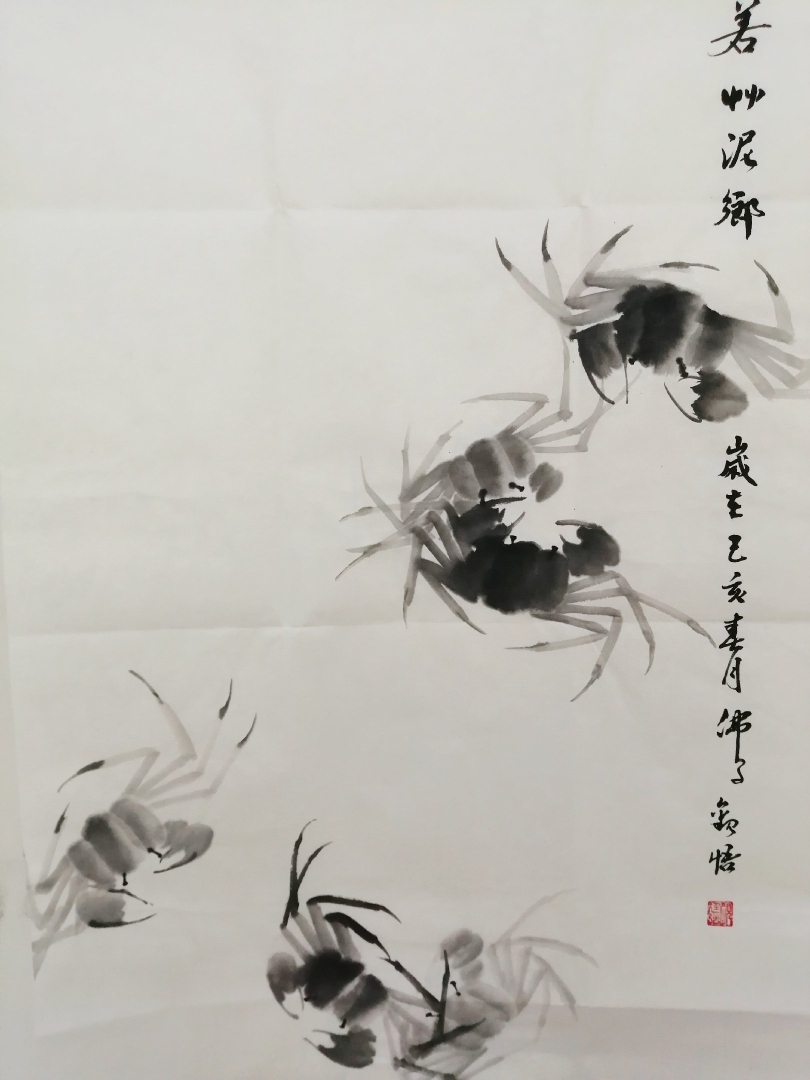 若艸泥鄉
歲在己亥春月佛子
悟